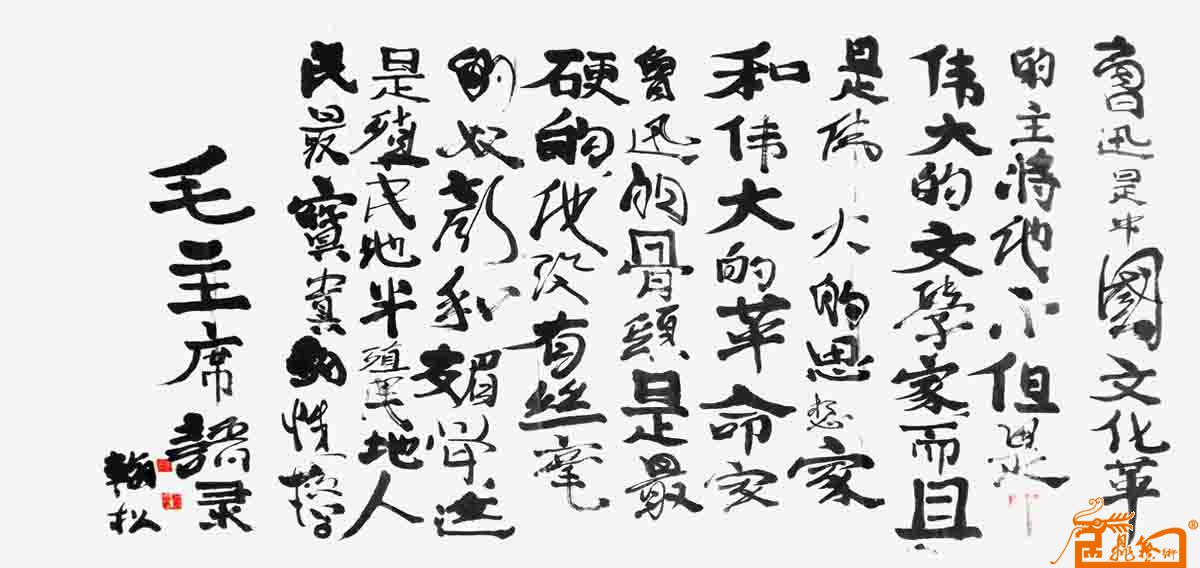 鲁迅是中國文化革
的主将他不但是
伟大的文學家而且
是偉大的思想家
和伟大的革命家
魯迅的骨頭是最
硬的他没有丝毫
的奴颜和媚骨这
是殖民地半殖民地人
民最寶貴的性格
毛主席語录
翰松